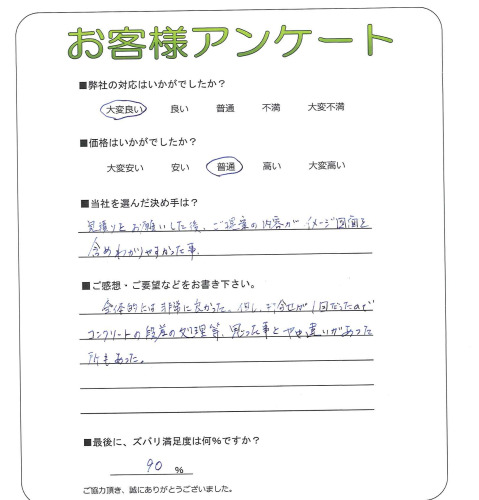 お客様アンケート
■弊社の対応はいかがでしたか？
大変良い 良い 普通 不満 大変不満
■価格はいかがでしたか？
大変安い 安い 普通 高い 大変高い
■当社を選んだ決め手は？
見積りをお願いした後、ご提案の内容がイメージ図面を
含めわかりやすかった事。
■ご感想・ご要望などをお書き下さい。
全体的には非常に良かった。但し、打合せが1回だったので
コンクリートの段差の処理等、思った事と 違いがあった
所もあった。
■最後に、ズバリ満足度は何%ですか？
90 %
ご協力頂き、誠にありがとうございました。